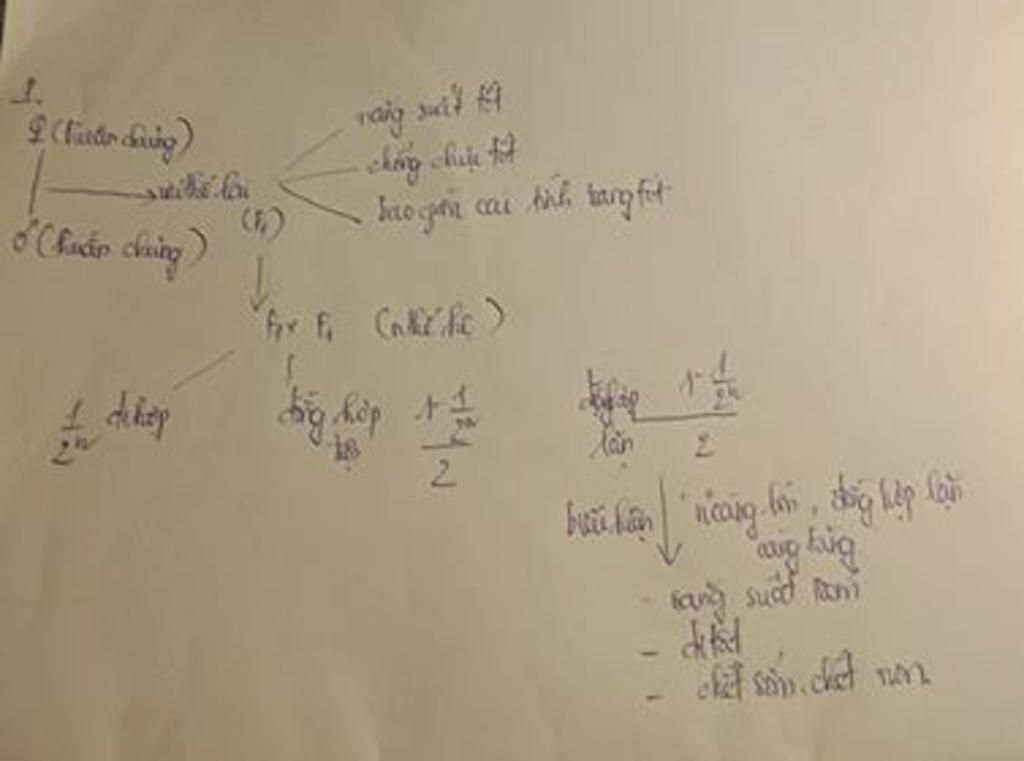 1.
♀ (thuần chủng)
ưu thế lai
(F₁)
♂ (thuần chủng)
năng suất tốt
chống chịu tốt
bao gồm các tính trạng tốt
F₁ x F₁ (n thế hệ)
1/2ⁿ dị hợp
đồng hợp
trội
1 - 1/2ⁿ
2
đồng hợp
lặn
1 - 1/2ⁿ
2
biểu hiện
n càng lớn, đồng hợp lặn
càng tăng
- năng suất kém
- dị tật
- chết sớm, chết non